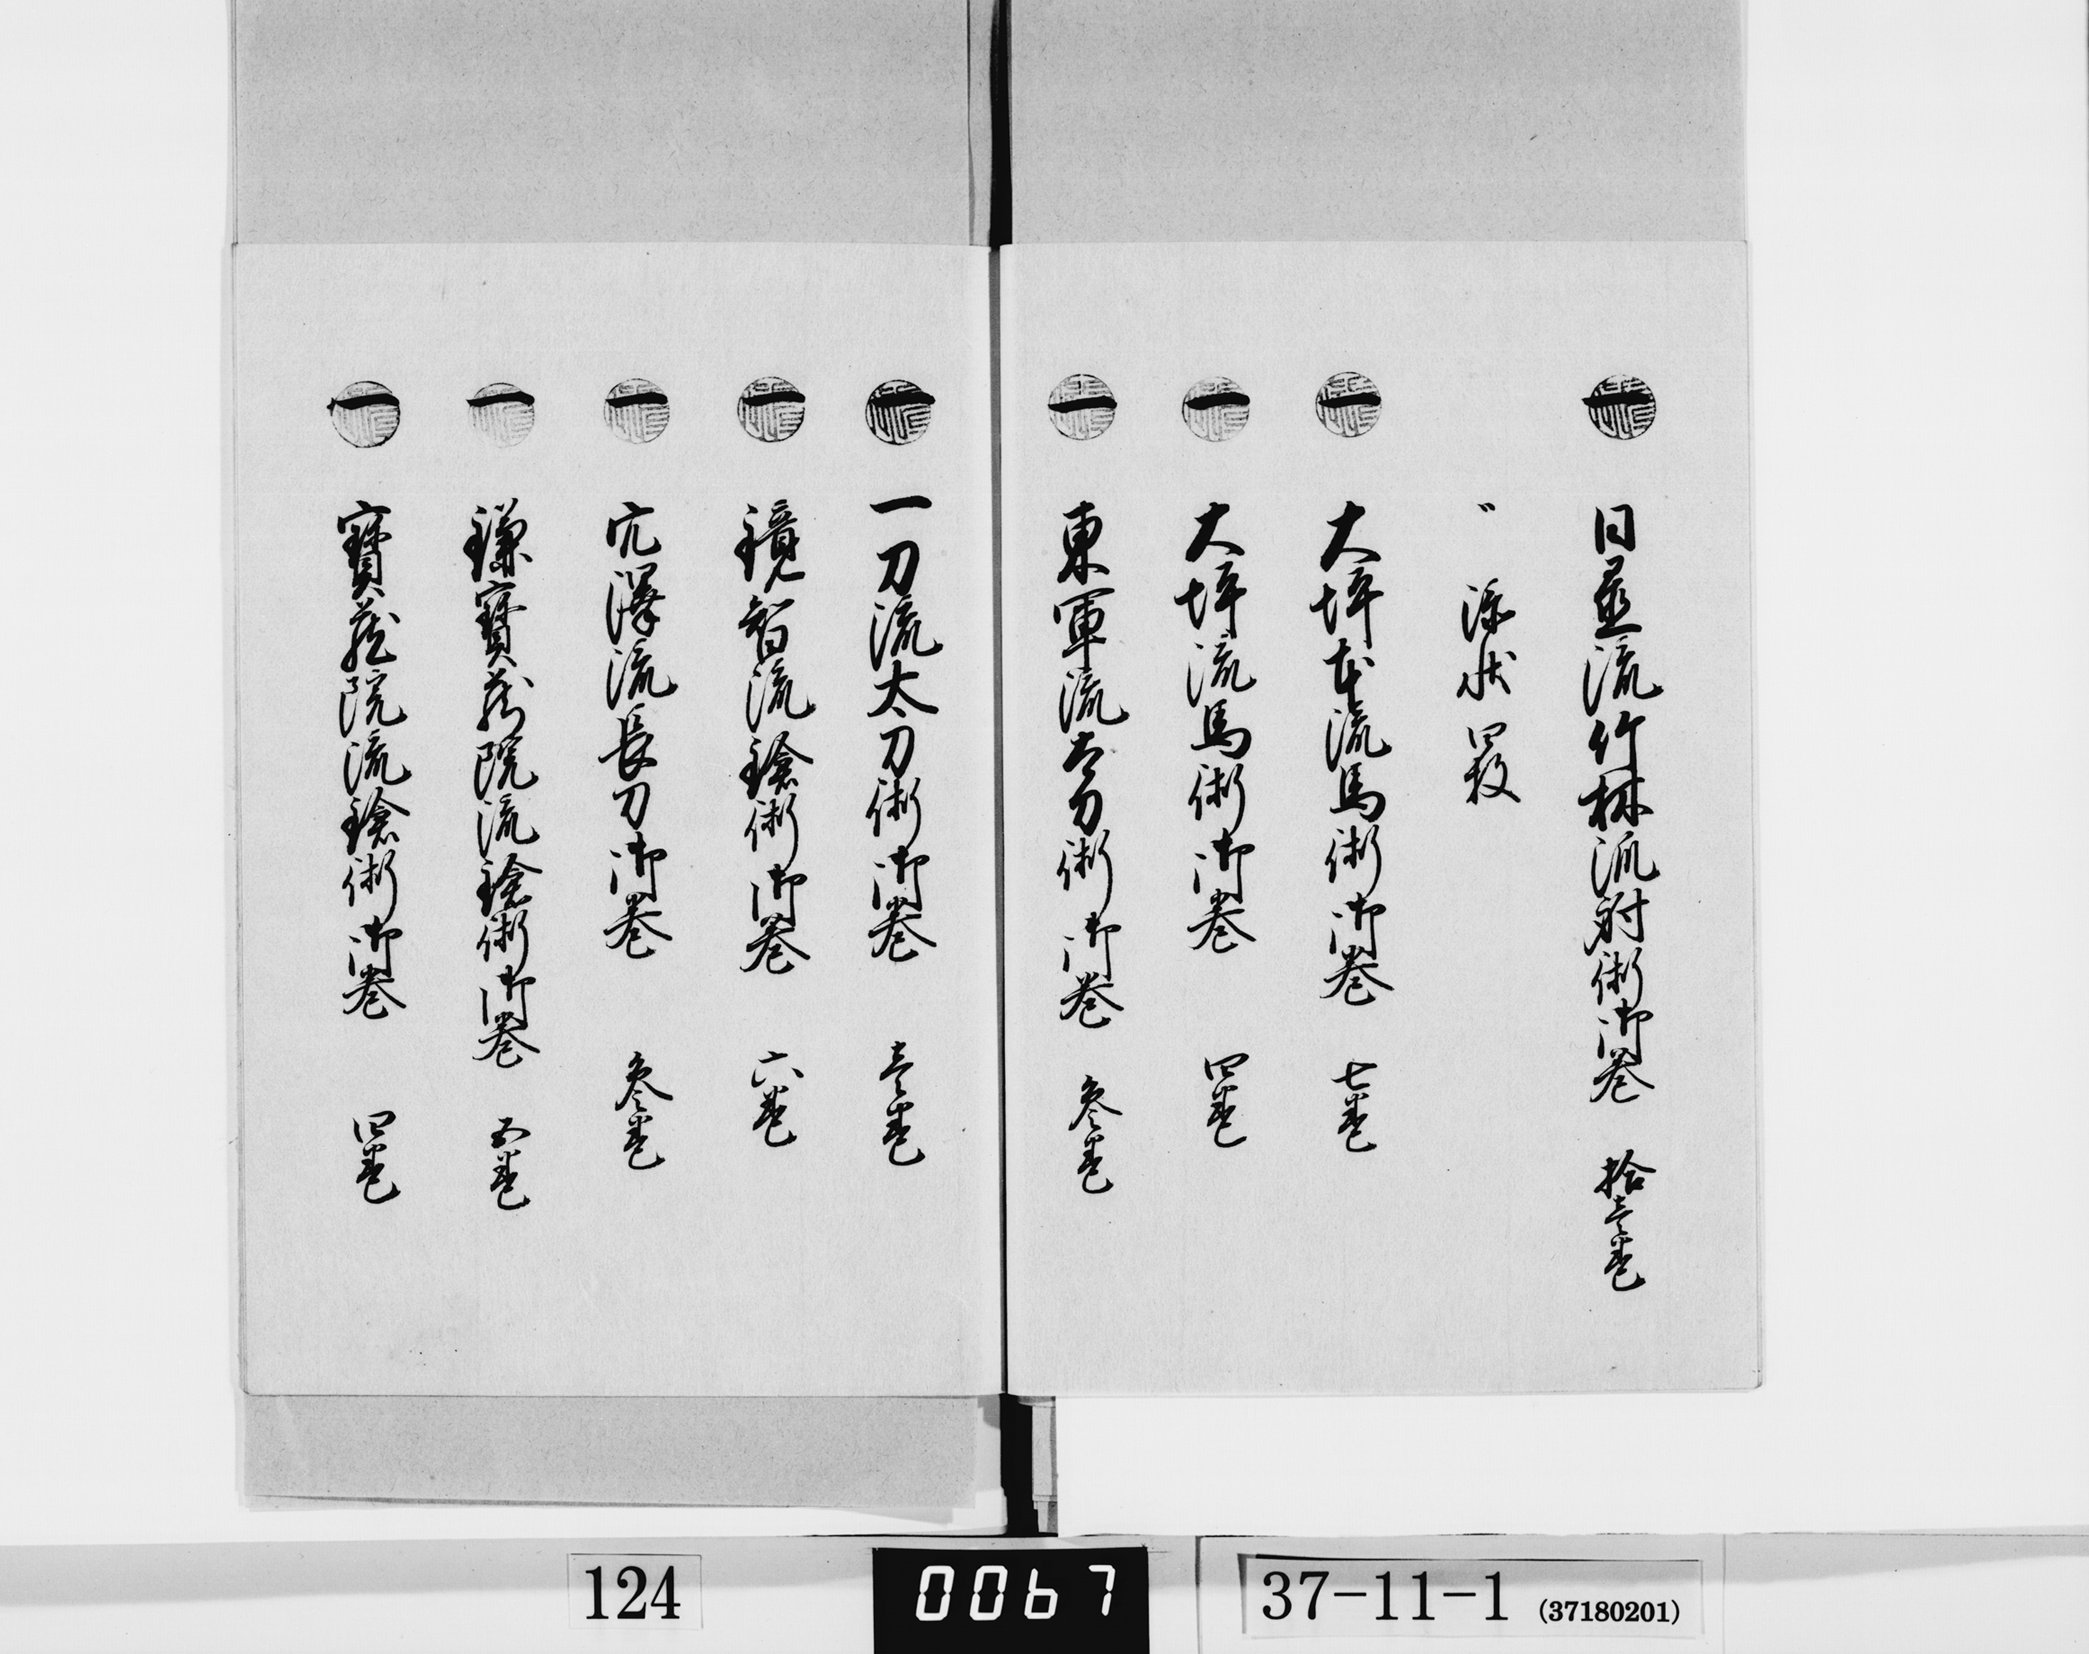 一 日置流竹林派射術御巻 拾壹巻
〃 添状 四枚
一 大坪本流馬術御巻 七巻
一 大坪流馬術御巻 四巻
一 東軍流太刀術御巻 参巻
一 一刀流太刀術御巻 壹巻
一 鏡智流鎗術御巻 六巻
一 穴澤流長刀御巻 参巻
一 鎌寶蔵院流鎗術御巻 五巻
一 寶蔵院流鎗術御巻 四巻
124
0067
37-11-1 (37180201)